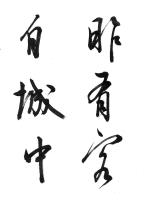 昨有客
白城中